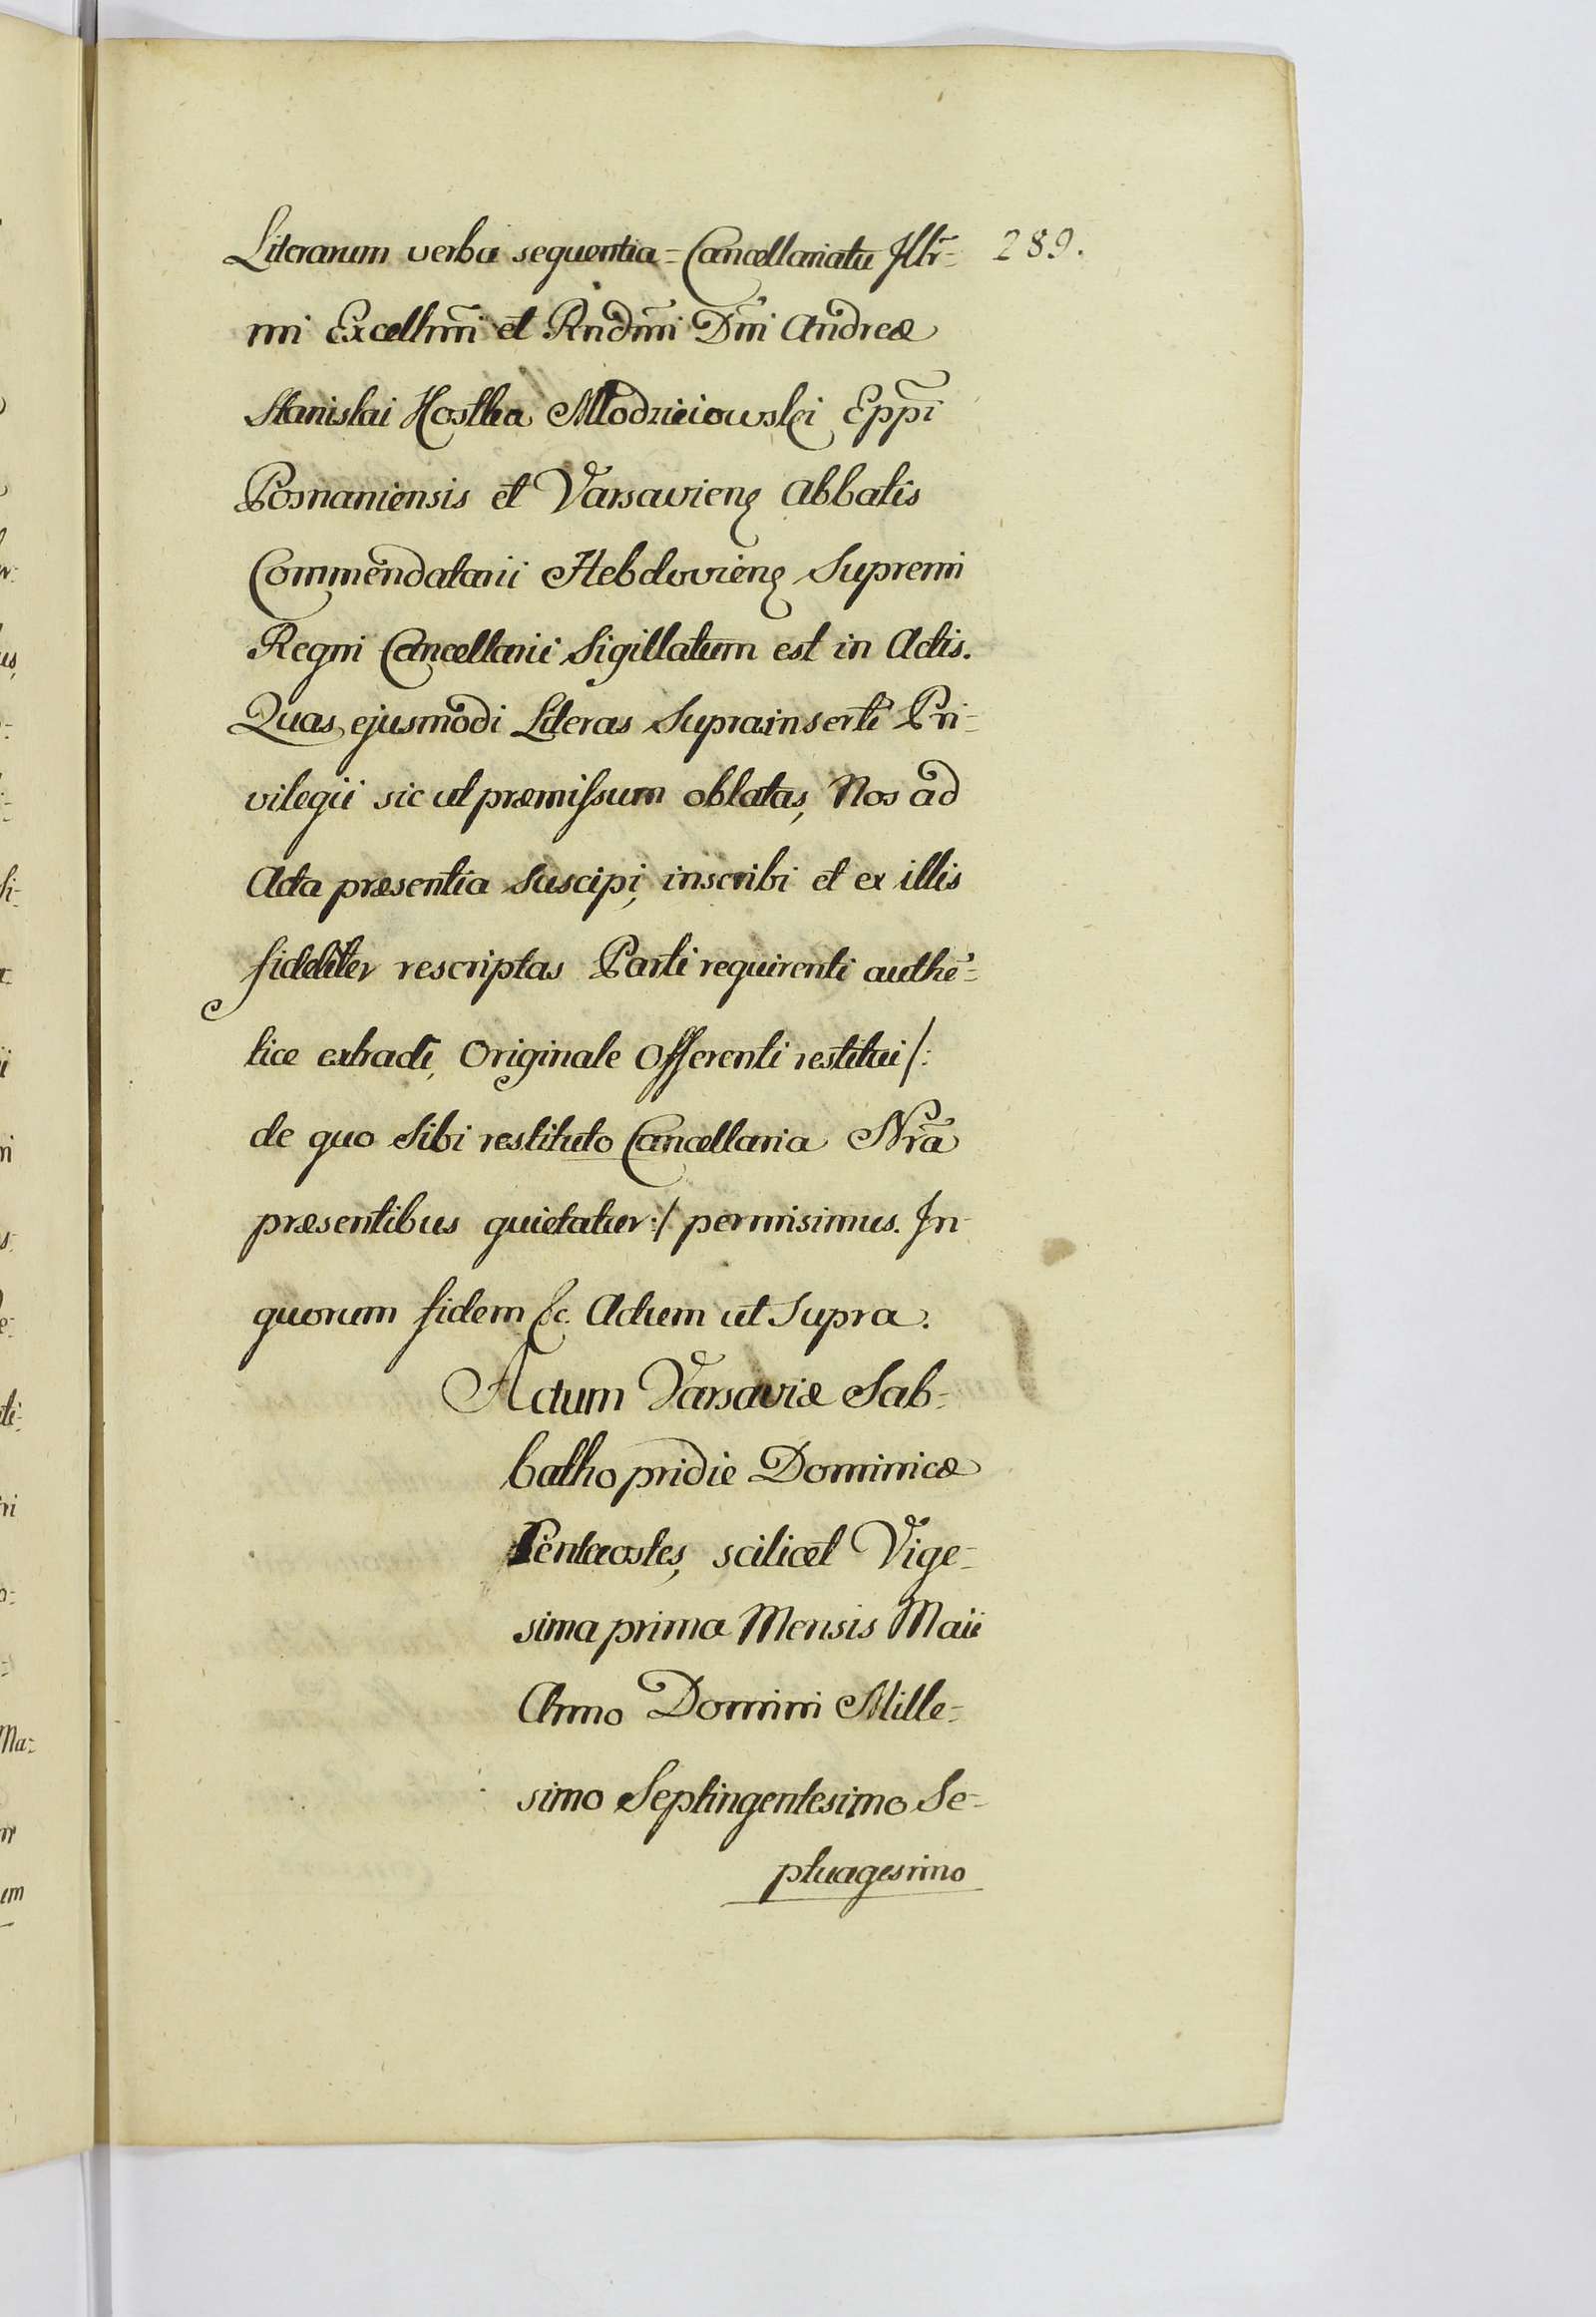 Literarum verba sequentia = Cancellariatu Jllr= 289.
mi Excellm̃i et Rndm̃i Dñi Andreæ
Stanislai Kostka Młodzieiowski Epp̃i
Posnaniensis et Varsavieng Abbatis
Commendatarii Hebdovieng Supremi
Regni Cancellarii Sigillatum est in Actis.
Quas ejusmodi Literas Suprainserti Pri=
vilegii sic ut præmissum oblatas, Nos ad
Acta præsentia suscipi, inscribi et ex illis
fideliter rescriptas Parti requirenti authē=
tice extradi, Originale Offerenti restitui /:
de quo Sibi restituto Cancellaria Nrã
præsentibus quietatur :/ permisimus. Jn
quorum fidem &c. Actum ut Supra.
Actum Varsaviæ Sab=
batho pridie Dominicæ
Pentecostes, scilicet Vige=
sima prima Mensis Maii
Anno Domini Mille=
simo Septingentesimo Se=
ptuagesimo